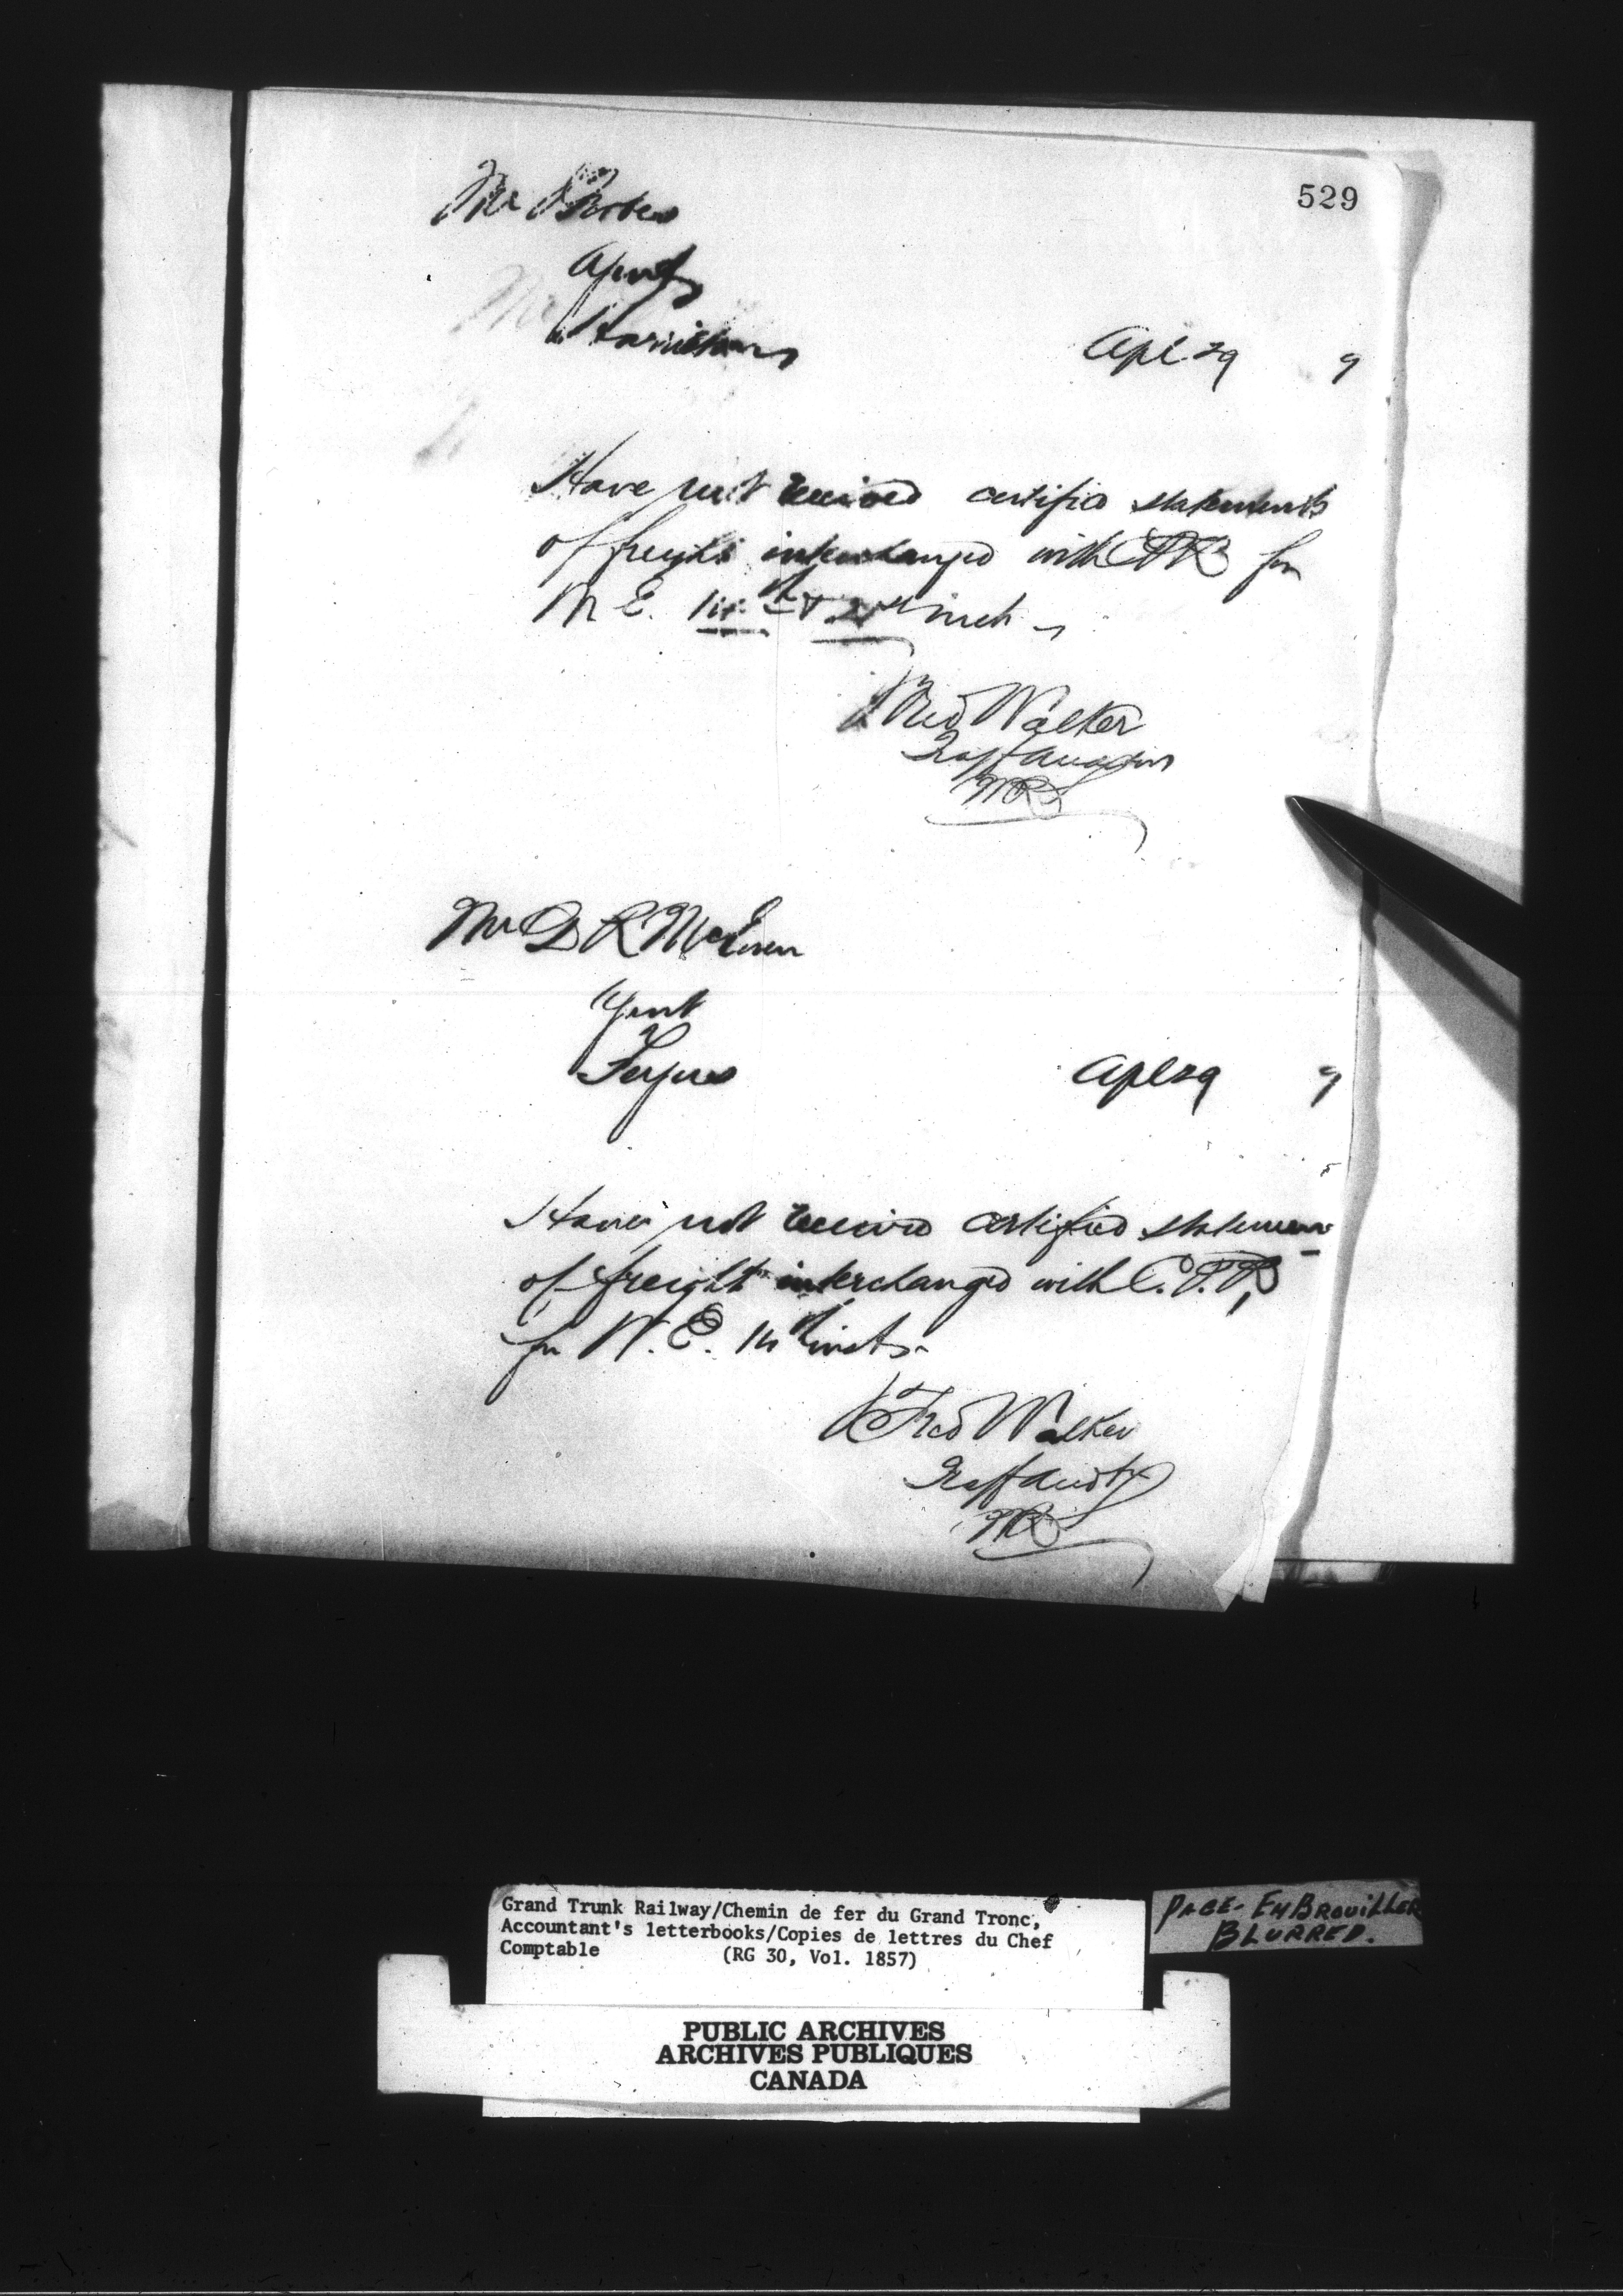 529
Mr Forbes
Agent
Harriston
Apl 29 9
Have not received certified statements
of freight interchanged with CPR for
W E. 14th & 21st inst.
Fred Walker
Traff Auditor
Mr D R McEwen
Agent
Fergus
Apl 29 9
Have not received certified statement
of freight interchanged with C.P.R,
for W. E. 14th inst.
Fred Walker
Traff Audtr
Grand Trunk Railway/Chemin de fer du Grand Tronc,
Accountant's letterbooks/Copies de lettres du Chef
Comptable (RG 30, Vol. 1857)
PAGE-EMBROUILLER
BLURRED.
PUBLIC ARCHIVES
ARCHIVES PUBLIQUES
CANADA